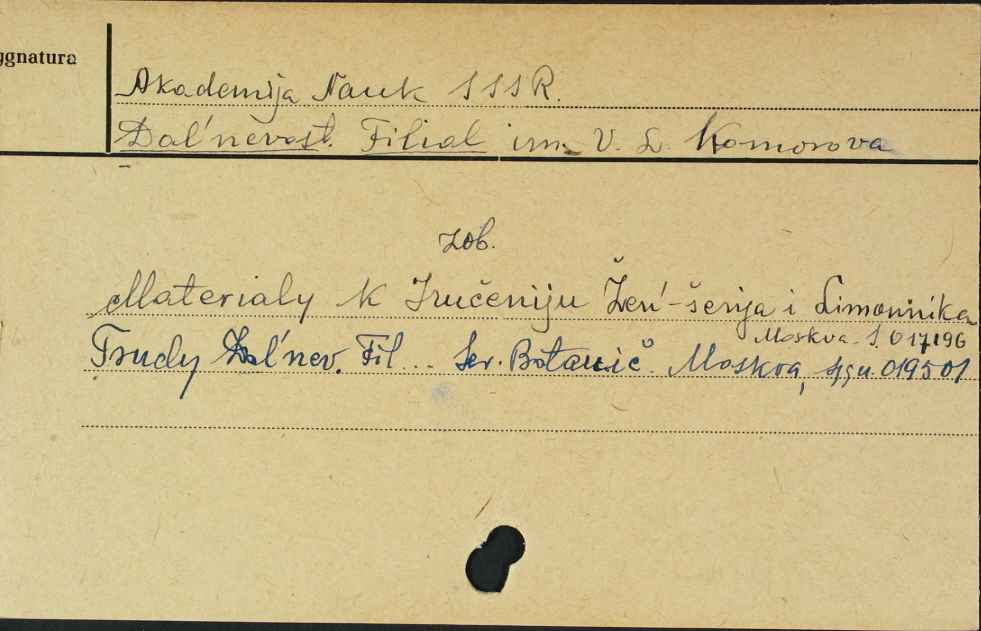 ygnatura
Akademija Nauk SSSR.
Dal'nevost. Filial im. V. L. Komorova
zob.
Materialy k Izučeniju Žeń-šenja i Limonnika
Moskva. S. 017196
Trudy Dal'nev. Fil... Ser. Botanič. Moskva, sygn. 019501